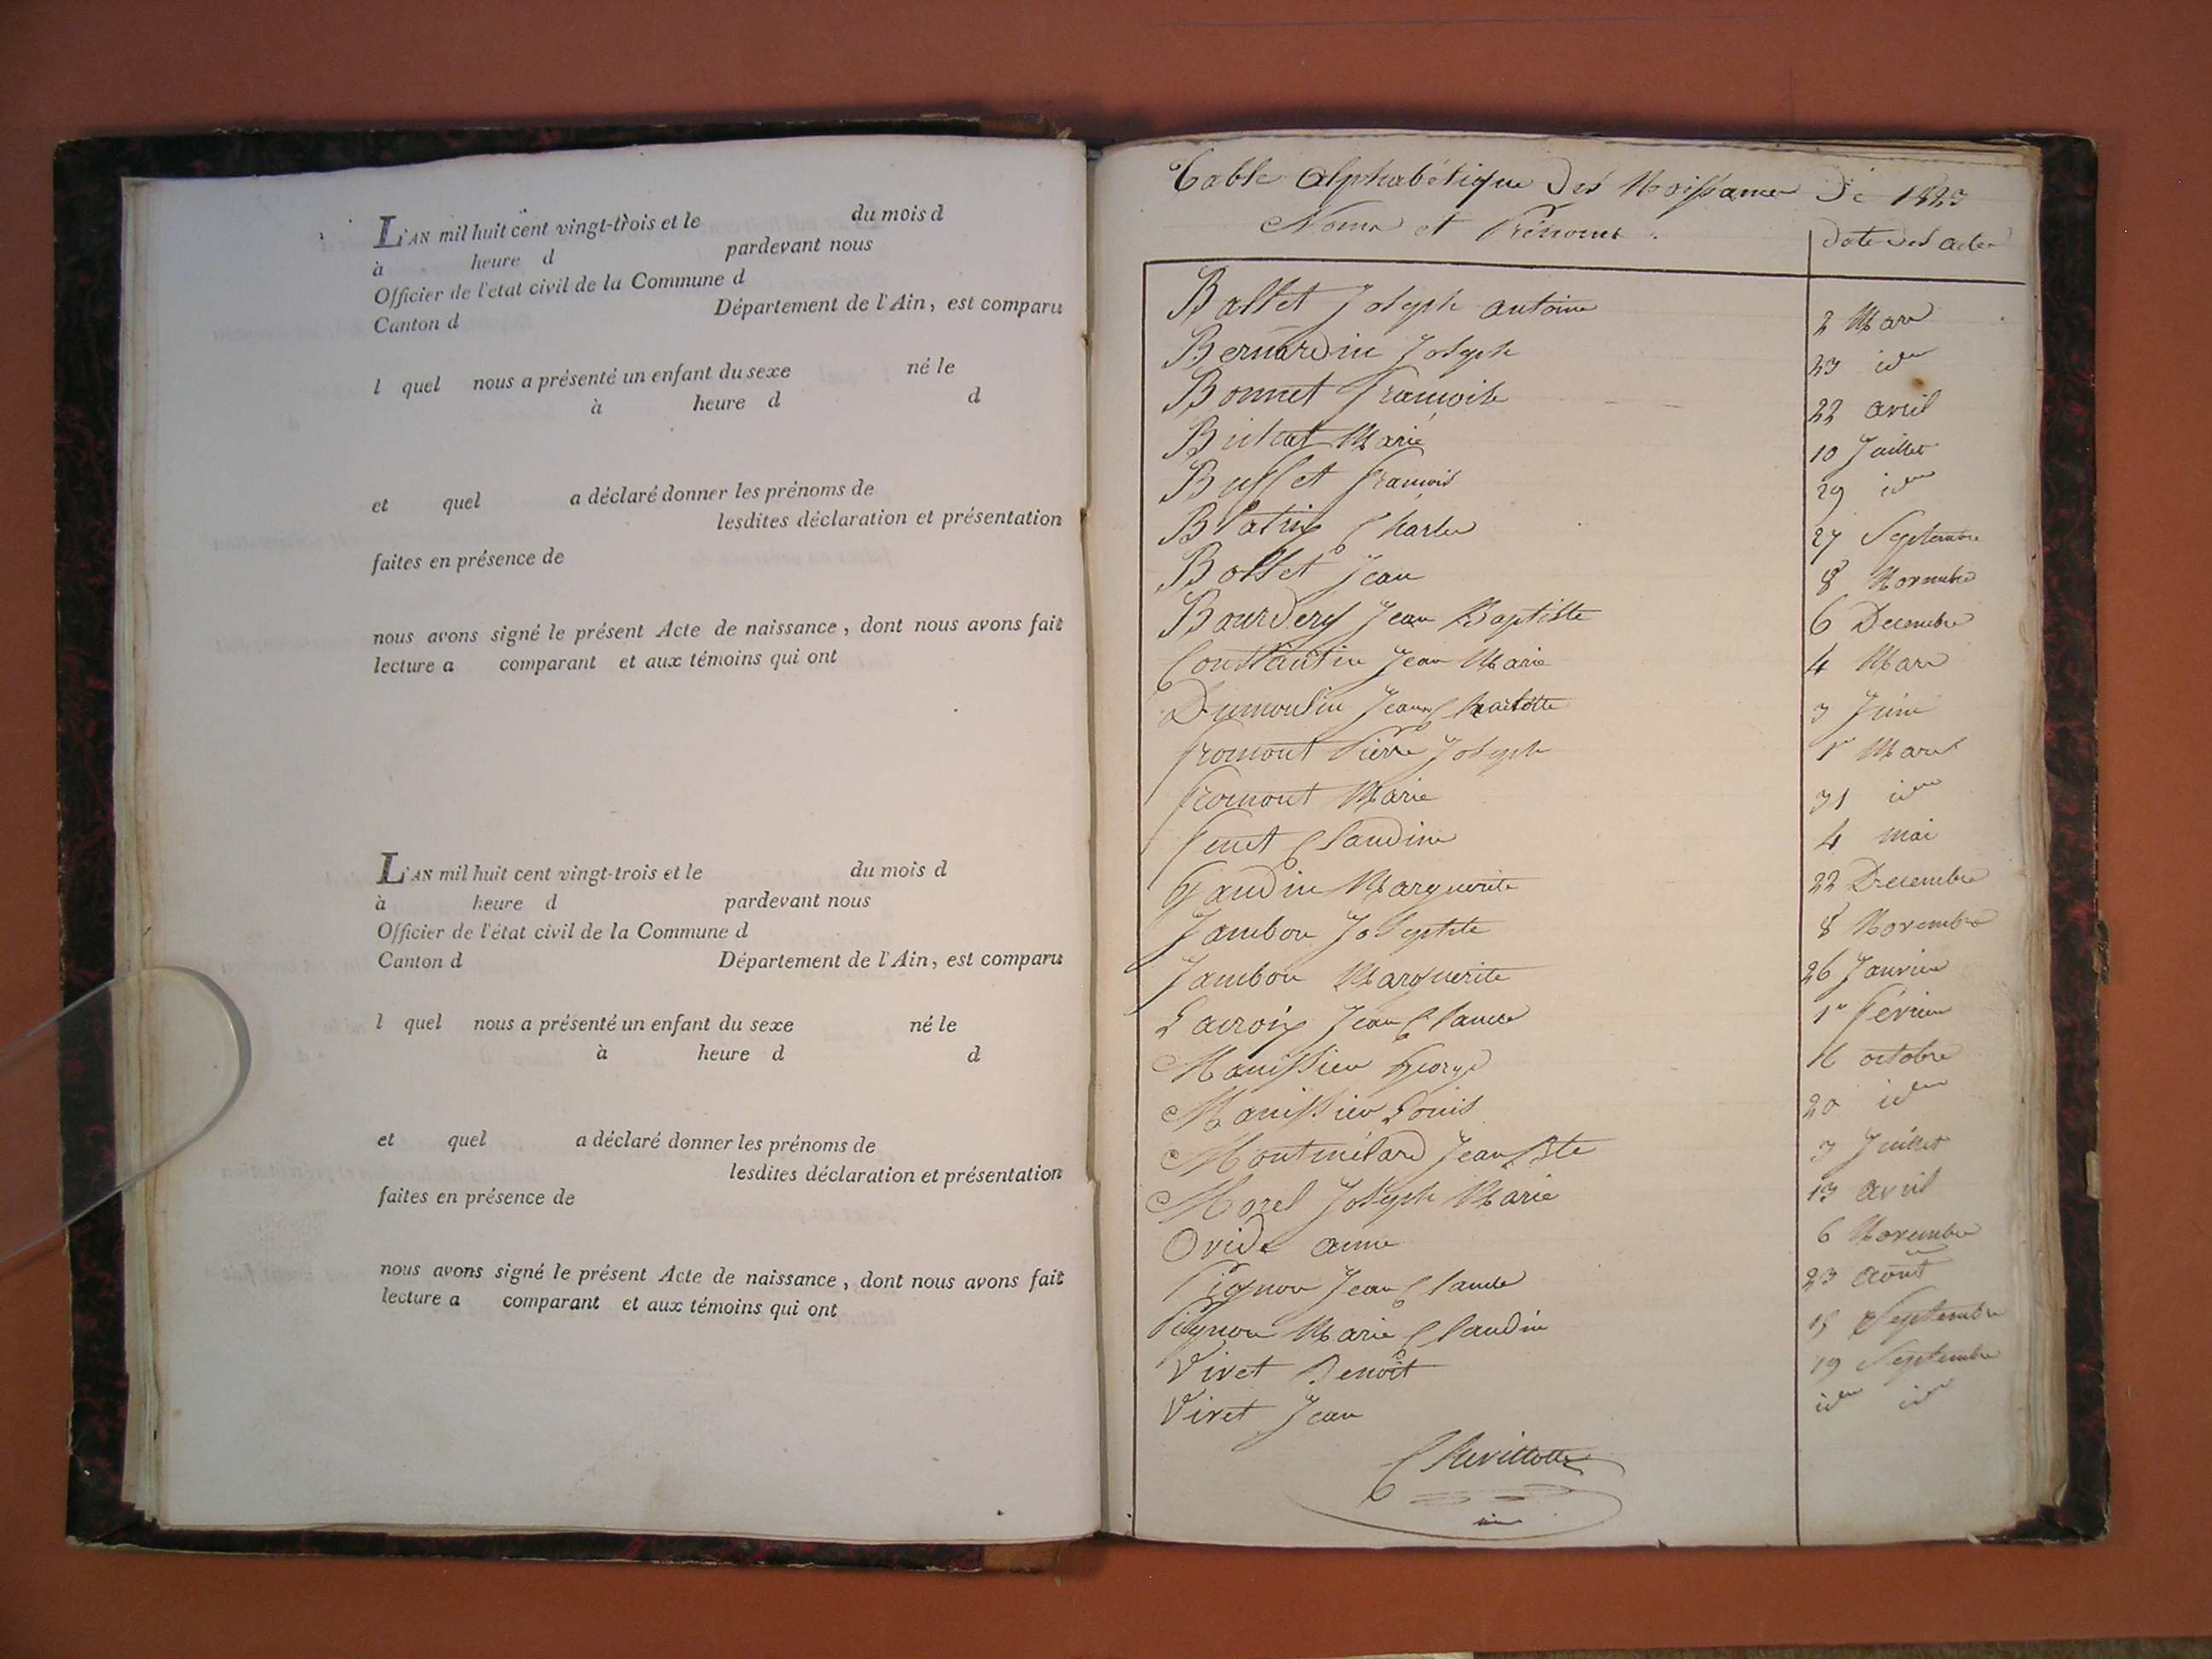 L'AN mil huit cent vingt-trois et le du mois d
à heure d pardevant nous
Officier de l'état civil de la Commune d
Canton d Département de l'Ain, est comparu
l quel nous a présenté un enfant du sexe né le
à heure d d
et quel a déclaré donner les prénoms de
lesdites déclaration et présentation
faites en présence de
nous avons signé le présent Acte de naissance, dont nous avons fait
lecture a comparant et aux témoins qui ont
L'AN mil huit cent vingt-trois et le du mois d
à heure d pardevant nous
Officier de l'état civil de la Commune d
Canton d Département de l'Ain, est comparu
l quel nous a présenté un enfant du sexe né le
à heure d d
et quel a déclaré donner les prénoms de
lesdites déclaration et présentation
faites en présence de
nous avons signé le présent Acte de naissance, dont nous avons fait
lecture a comparant et aux témoins qui ont
Table Alphabétique Des Naissances De 1823
Noms et Prénoms. Date des actes
Ballet Joseph antoine 2 Mars
Bernardin Joseph 23 idem
Bonnet Françoise 22 avril
Marie 10 Juillet
Buffet François 29 idem
Blatrix Charles 27 Septembre
Bollet Jean 8 Novembre
Bourdery Jean Baptiste 6 Decembre
Constantin Jean Marie 4 Mars
Dumoulin Jeanne Charlotte 3 Juin
Fromont Pierre Joseph 1er Mars
Fromont Marie 31 idem
Claudine 4 mai
Gaudin Marguerite 22 Decembre
Jambon Josephte 8 Novembre
Jambon Marguerite 26 Janvier
Lacroix Jean Claude 1er Février
Manissieu George 16 octobre
Manissieu Louis 20 idem
Montmélard Jean Bte 3 Juillet
Morel Joseph Marie 13 avril
Ovide anne 6 Novembre
Pignon Jean Claude 23 Août
Pignon Marie Claudine 15 Septembre
Viret Benoît 19 Septembre
Viret Jean idem idem